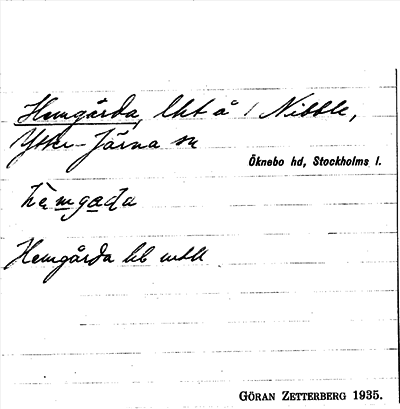 Hemgårda, lht å 1 Nibble,
Ytter-Järna sn
Öknebo hd, Stockholms l.
hèmgaḍa
Hemgårda hb
GÖRAN ZETTERBERG 1935.